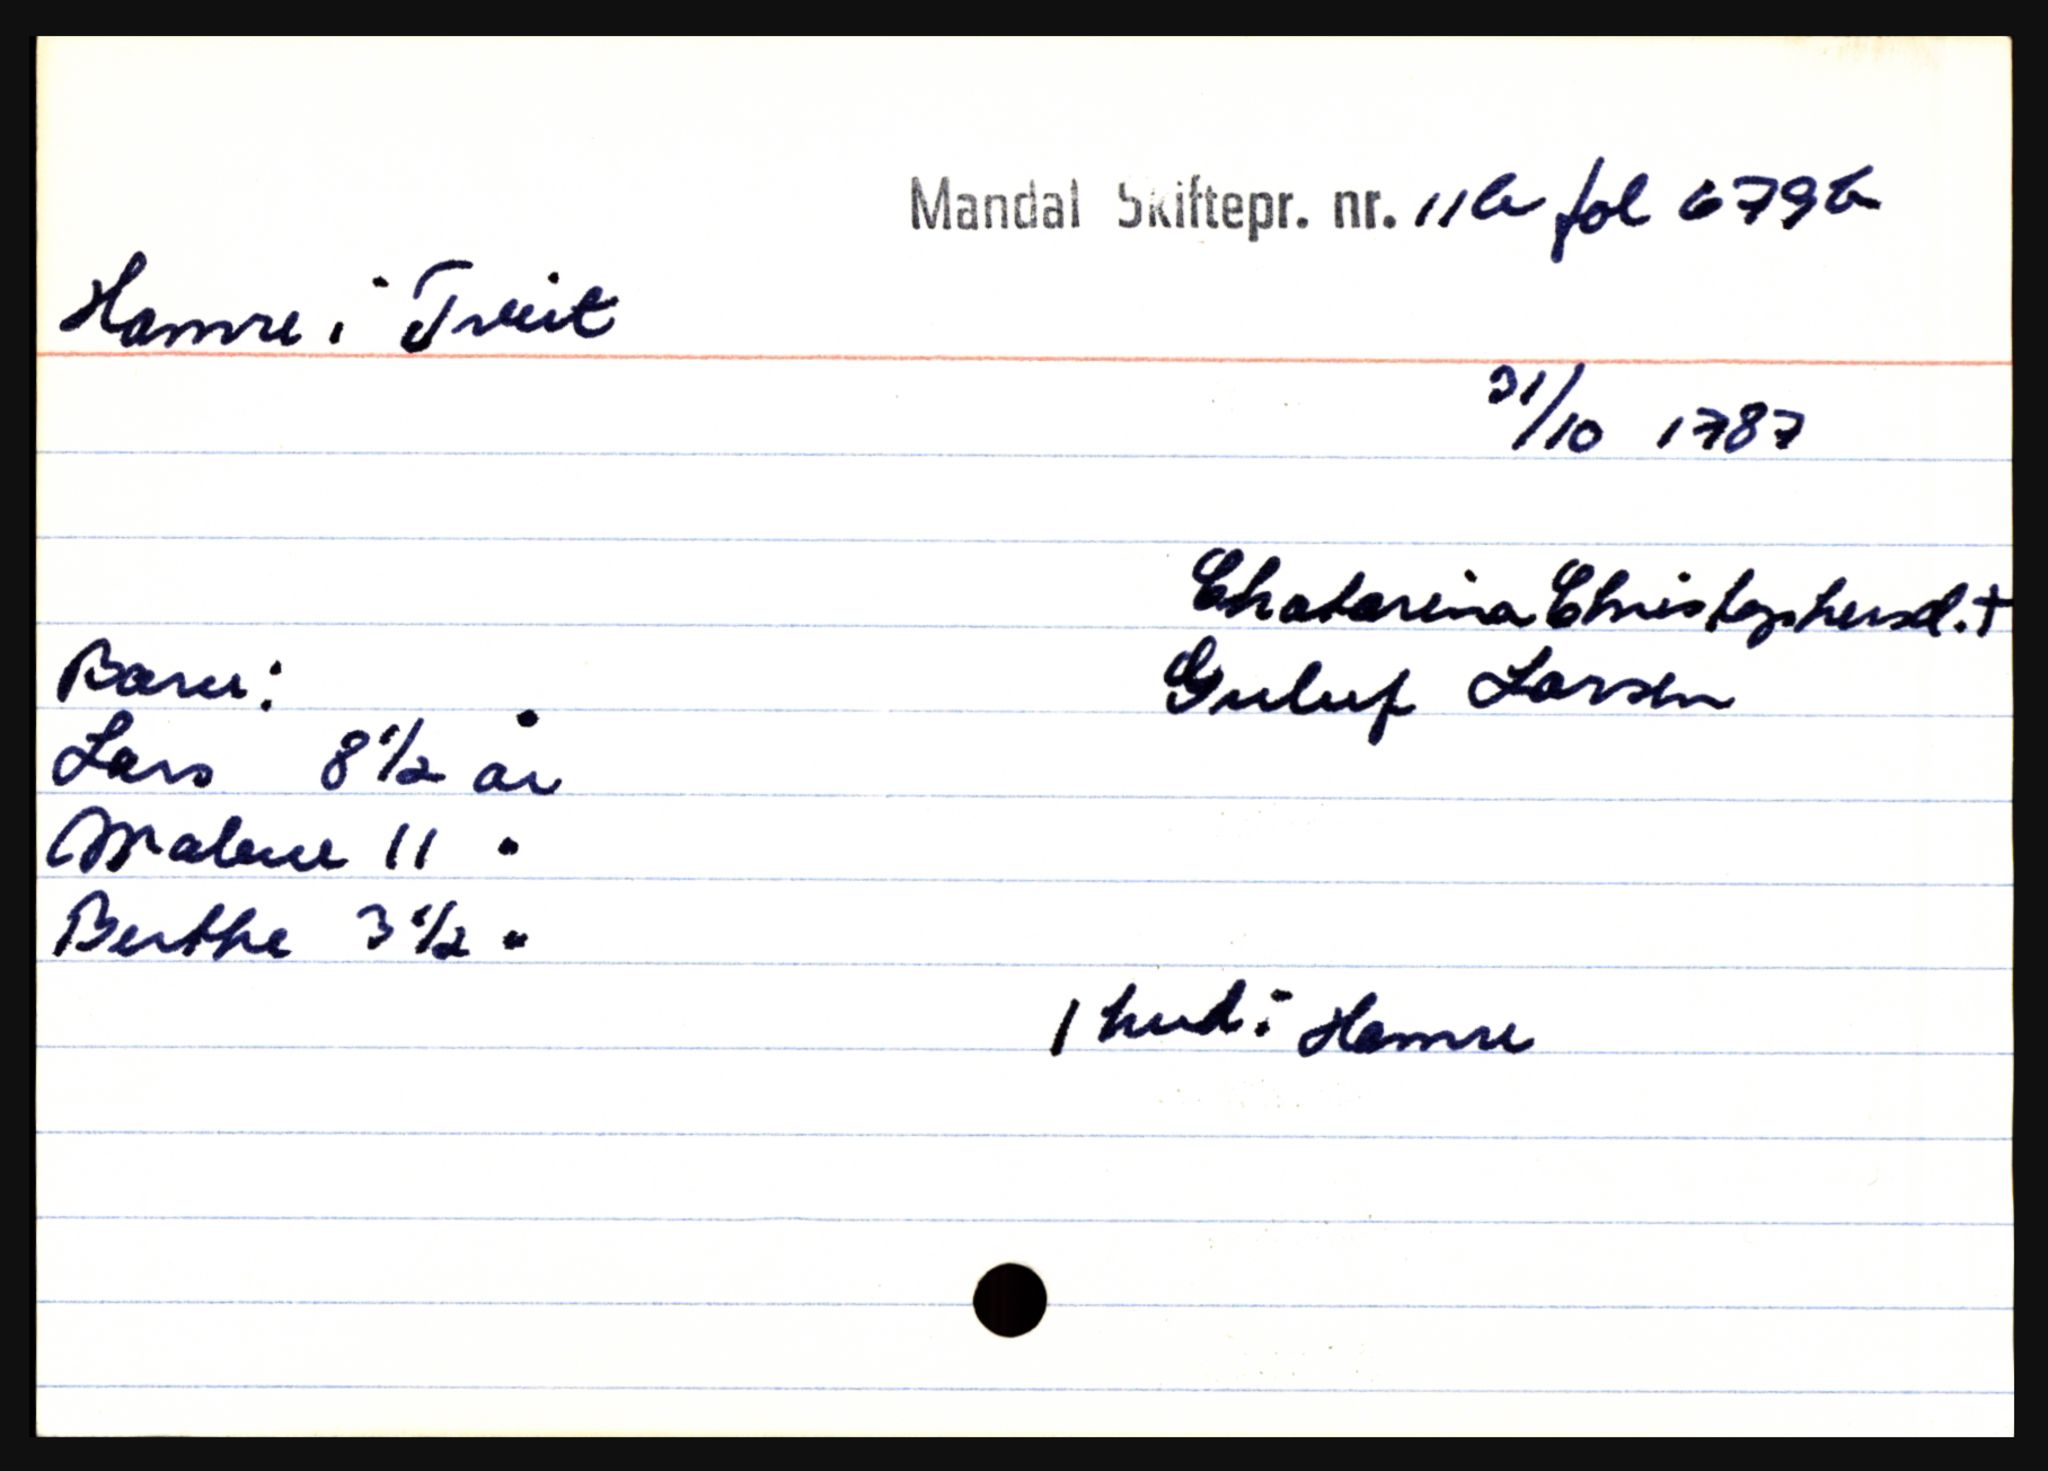 Mandal Skiftepr. nr. 11b fol 679b
Hamre i Tveit
31/10 1787
Chatarina Christophersd. +
Barn:
Guluf Larsen
Lars 8 1/2 år
Malene 11 "
Berthe 3 1/2 "
1 hud i Hamre